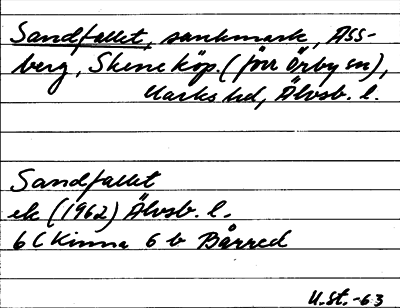 Sandfallet, sankmark, Ass-
berg, Skene köp. (förr Örby sn),
Marks hd, Älvsb. l.
Sandfallet
ek (1962) Älvsb. l.
6 C Kinna 6 b Bårred
U.St.-63